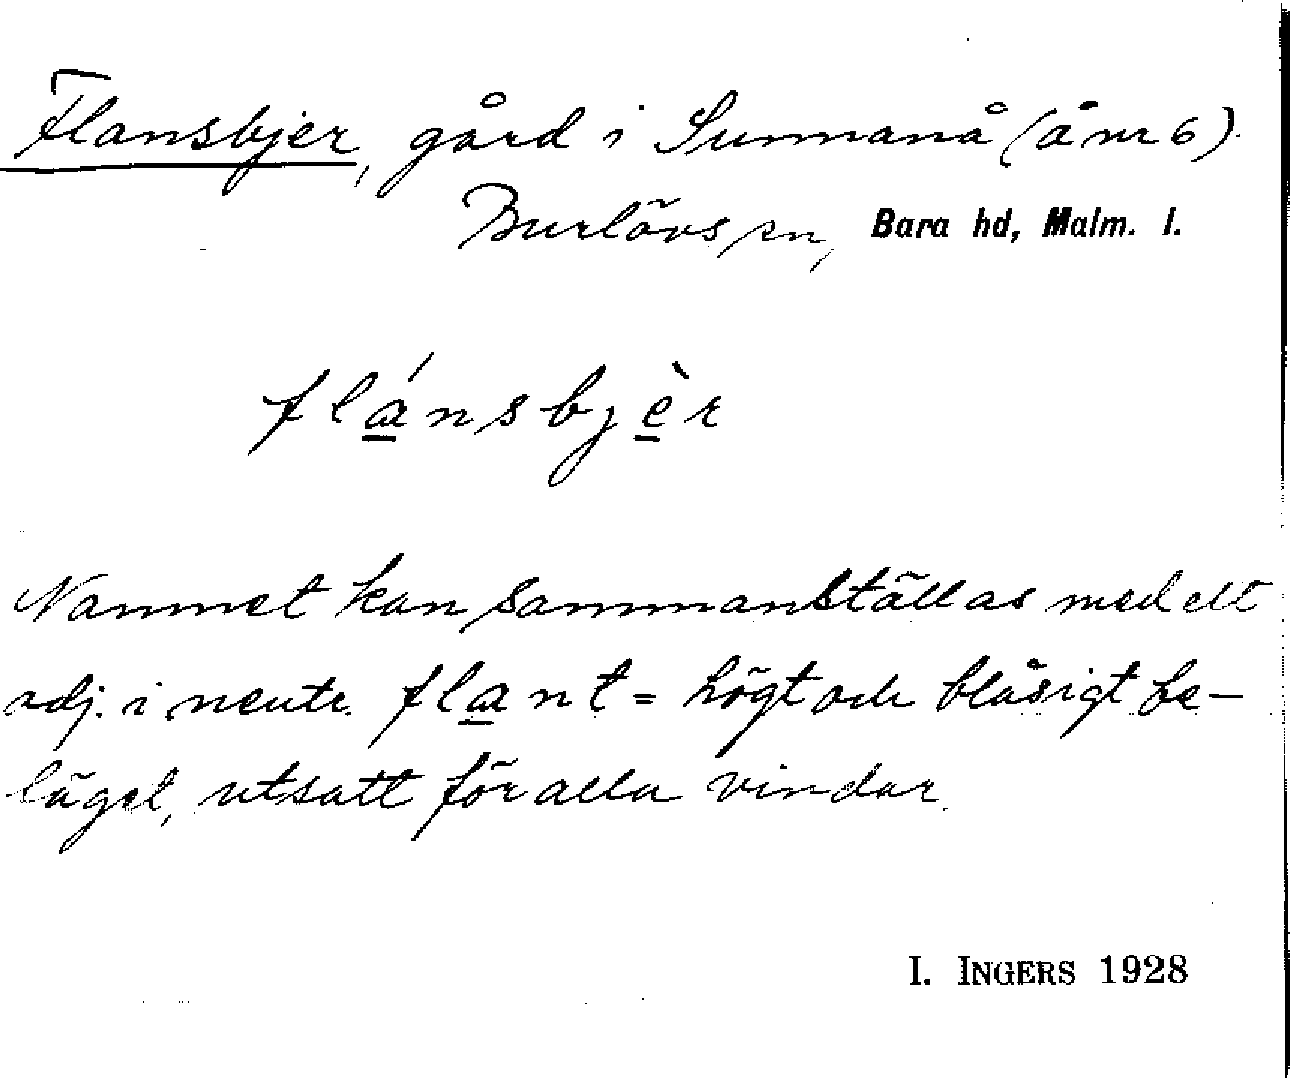 Flansbjer, gård i Sunnanå (å nr 6).
Burlövs sn, Bara hd, Malm. l.
flánsbjèr
Namnet kan sammanställas med ett
adj. i neutr. flant = högt och blåsigt be-
läget, utsatt för alla vindar.
I. INGERS 1928